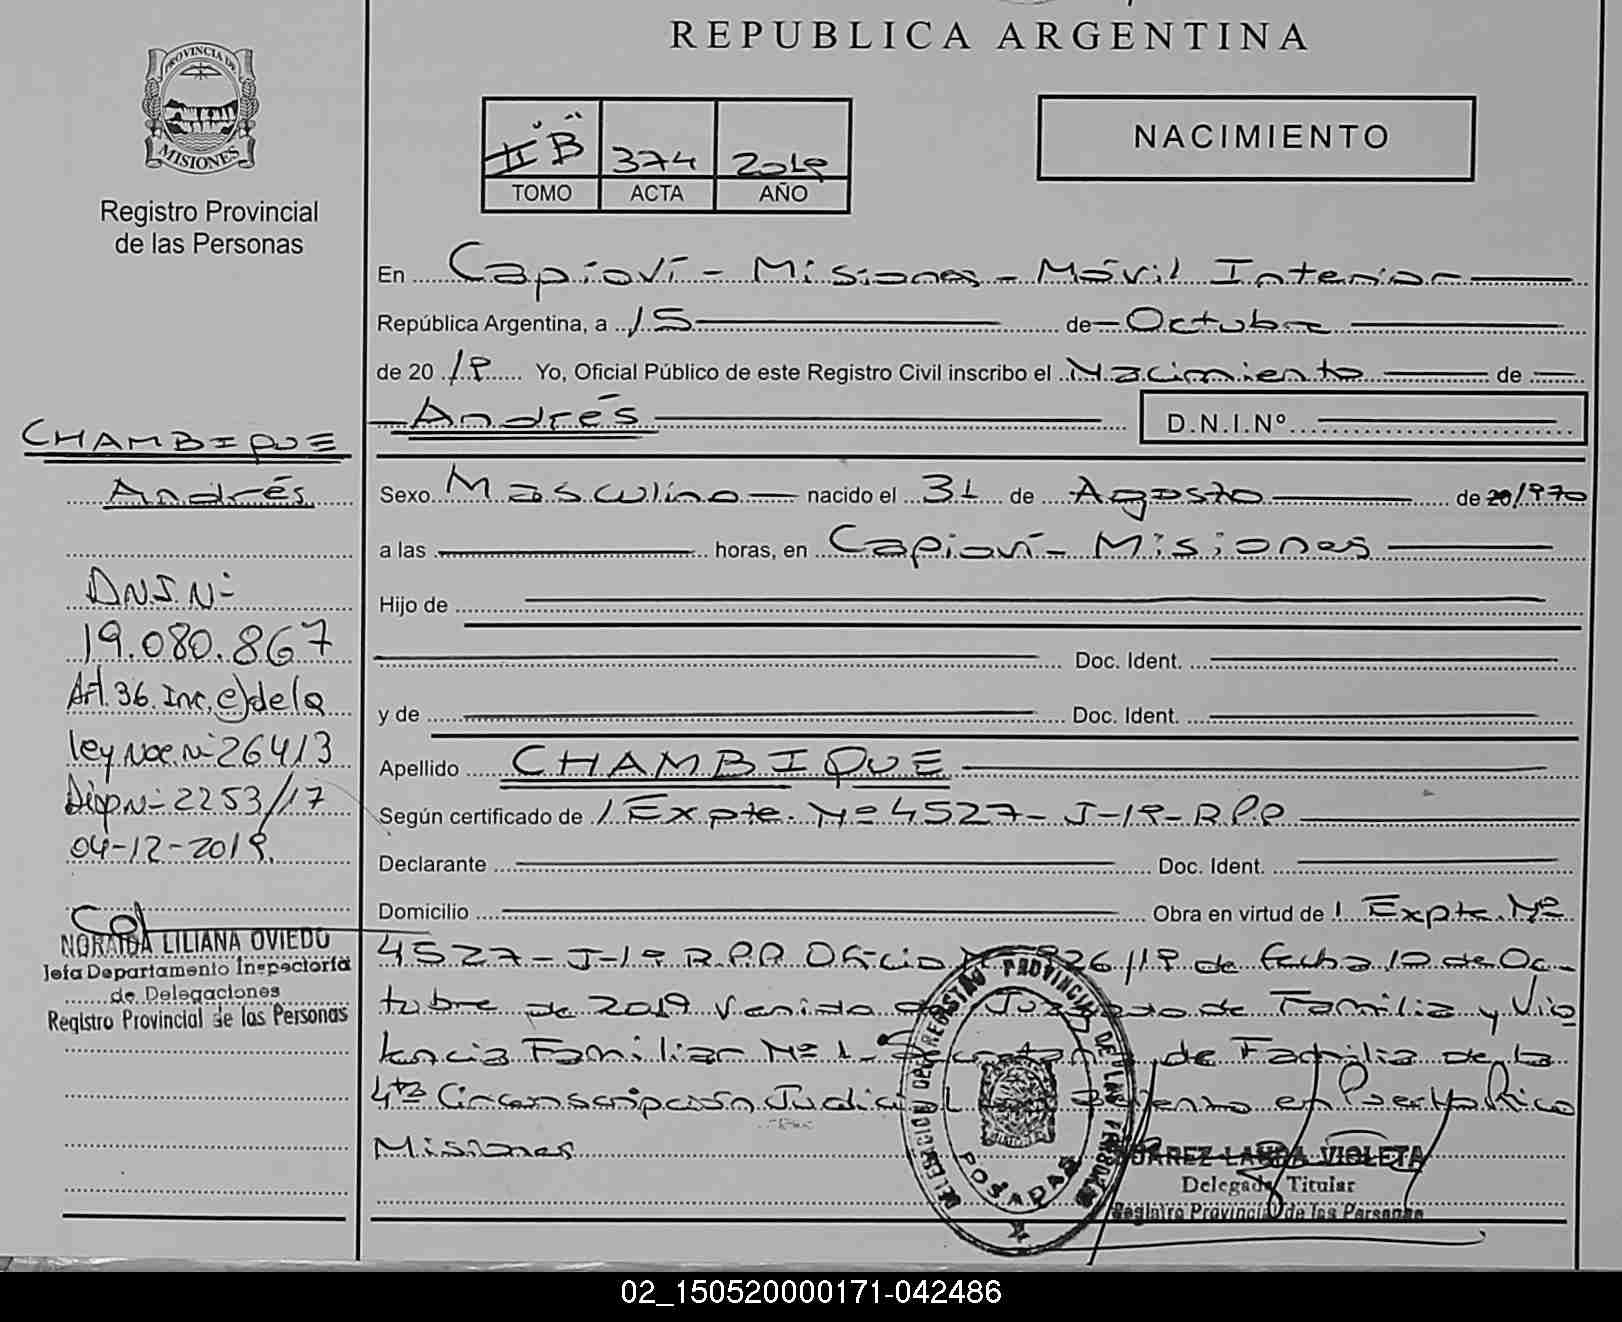 REPUBLICA ARGENTINA
PROVINCIA DE
MISIONES
Registro Provincial
de las Personas
II B 374 2019
TOMO ACTA AÑO
NACIMIENTO
En Capioví - Misiones - Móvil Interior
República Argentina, a 15 de Octubre
de 20 19 Yo, Oficial Público de este Registro Civil inscribo el Nacimiento de
Andrés D.N.I.Nº
Sexo Masculino nacido el 31 de Agosto de 20/1970
a las horas, en Capioví - Misiones
Hijo de
Doc. Ident.
y de Doc. Ident.
Apellido CHAMBIQUE
Según certificado de / Expte. Nº 4527 - J-19- R.P.P
Declarante Doc. Ident.
Domicilio Obra en virtud de / Expte. Nº
4527 - J-19 R.P.P Oficio 26/19 de fecha 10 de Oc-
tubre de 2019 Venido Juzgado de Familia y Vio
lencia Familiar Nº 1 - Secretaría de Familia de la
4ta Circunscripción Judicial en Puerto Rico
Misiones
CHAMBIQUE
Andrés
D.N.I. Nº
19.080.867
Art. 36. Inc. e) de la
ley Nac. Nº 26413
Disp Nº 2253/17
04-12-2019.
NORAIDA LILIANA OVIEDO
Jefa Departamento Inspectoría
de Delegaciones
Registro Provincial de las Personas
DELEGACION DEL REGISTRO PROVINCIAL DE LAS PERSONAS
POSADAS
SUAREZ LANDA VIOLETA
Delegada Titular
Registro Provincial de las Personas
02_150520000171-042486